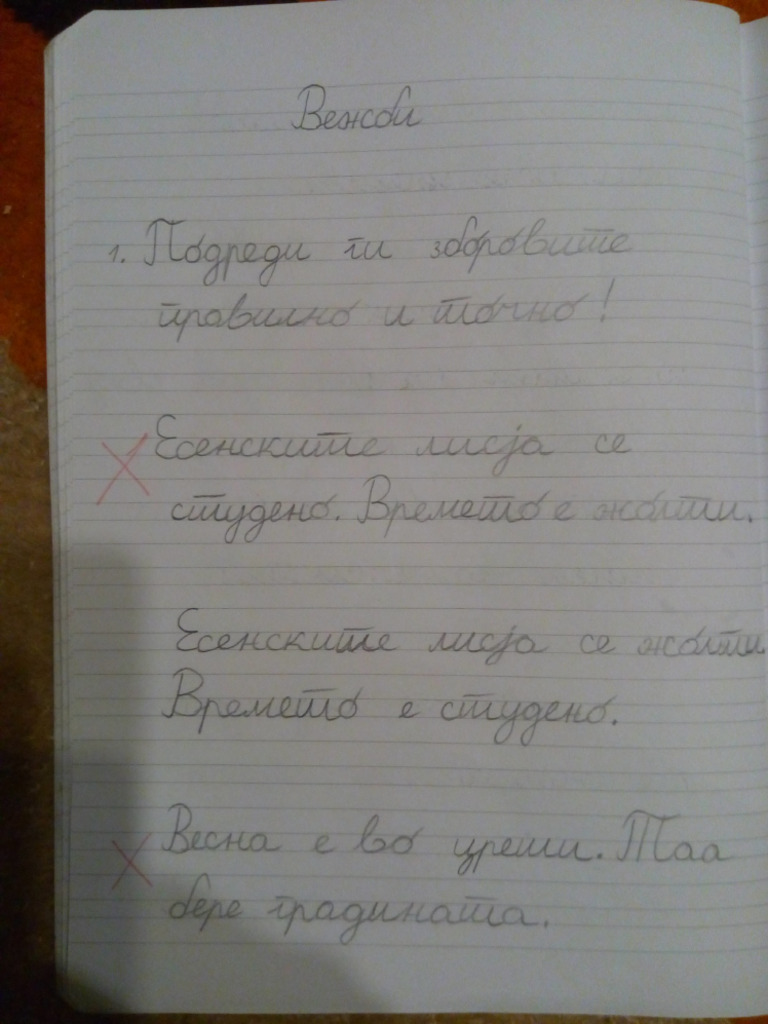 Вежби
1. Подреди ги зборовите
правилно и точно!
Есенските лисја се
студено. Времето е жолти.
Есенските лисја се жолти
Времето е студено.
Весна е во цреши. Таа
бере градината.